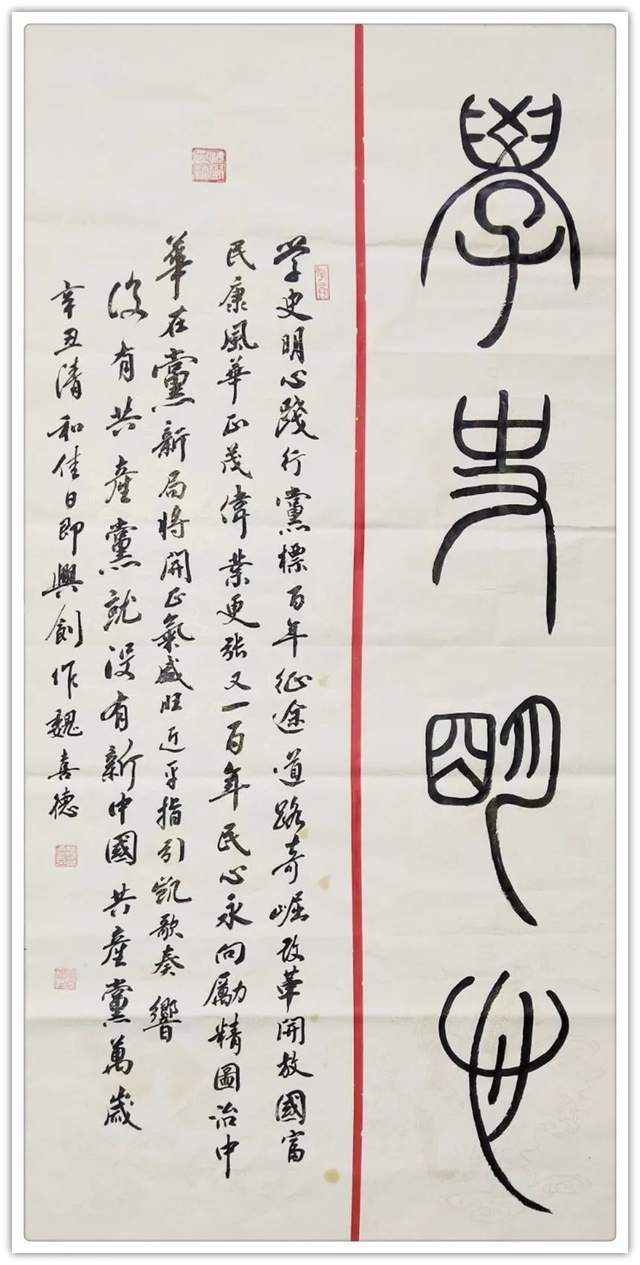 學史明心
学史明心踐行黨標百年征途道路奇崛改革開放國富
民康風華正茂偉業更張又一百年民心永向勵精圖治中
華在黨新局將開正氣盛旺近平指引凱歌奏響
没有共產黨就没有新中國共產黨萬歲
辛丑清和佳日即興創作魏喜德